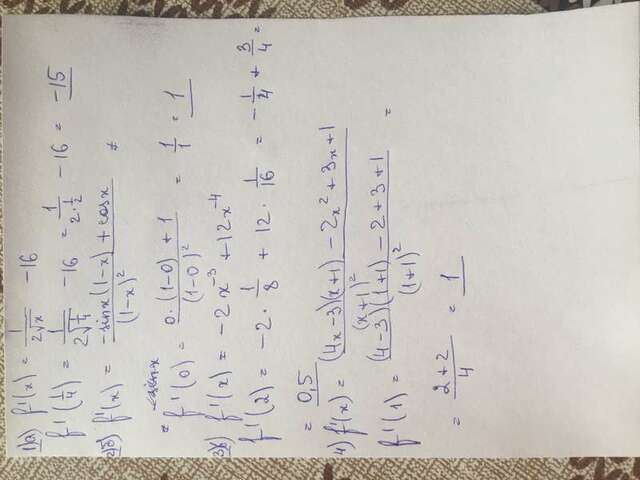 1)a) f'(x) = 1/(2√x) -16
f'(1/4) = 1/(2√(1/4)) -16 = 1/(2·1/2) -16 = -15
2)б) f'(x) = (-sinx(1-x) + cosx)/(1-x)²
f'(0) = (0·(1-0)+1)/(1-0)² = 1/1 = 1
3)в) f'(x) = -2x⁻³ +12x⁻⁴
f'(2) = -2·1/8 + 12·1/16 = -1/4 + 3/4 =
= 0,5
4) f'(x) = ((4x-3)(x+1) -2x²+3x+1)/(x+1)²
f'(1) = ((4-3)(1+1) -2+3+1)/(1+1)² =
= (2+2)/4 = 1